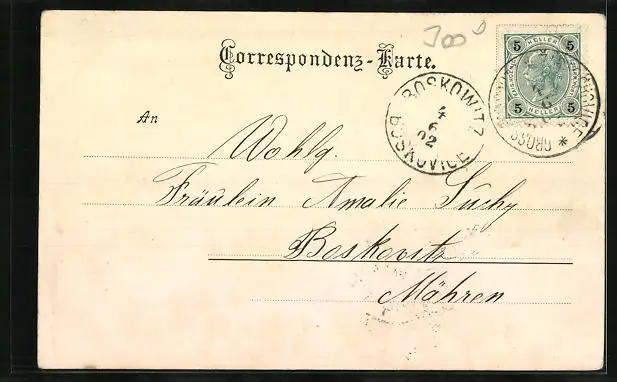 Correspondenz-Karte.
5 5
HELLER
5 HELLER 5
BOSKOWITZ
4
6
02
BOSKOVICE
GROSS
An
Wohlg.
Fräulein Amalie Suchy
Boskovitz
Mähren